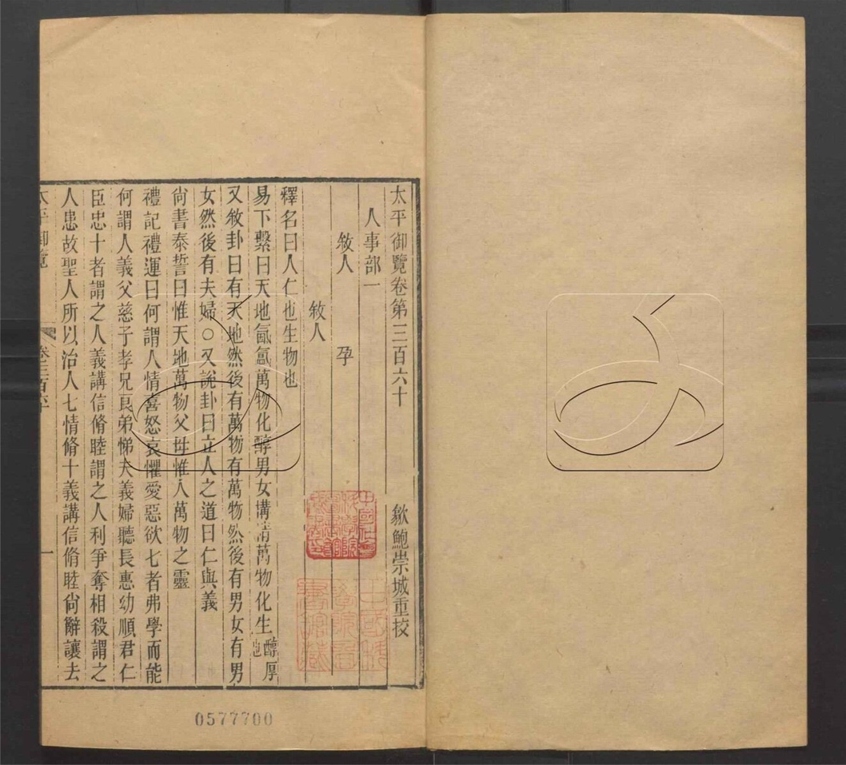 太平御覽卷第三百六十
歙鮑崇城重校
人事部一
敘人　孕
敘人
釋名曰人仁也生物也
易下繫曰天地氤氳萬物化醇男女溝精萬物化生醇厚也
又敘卦曰有天地然後有萬物有萬物然後有男女有男
女然後有夫婦○又說卦曰立人之道曰仁與義
尙書泰誓曰惟天地萬物父母惟人萬物之靈
禮記禮運曰何謂人情喜怒哀懼愛惡欲七者弗學而能
何謂人義父慈子孝兄良弟悌夫義婦聽長惠幼順君仁
臣忠十者謂之人義講信脩睦謂之人利爭奪相殺謂之
人患故聖人所以治人七情脩十義講信脩睦尙辭讓去
太平御覽　卷三百六十　一
0577700